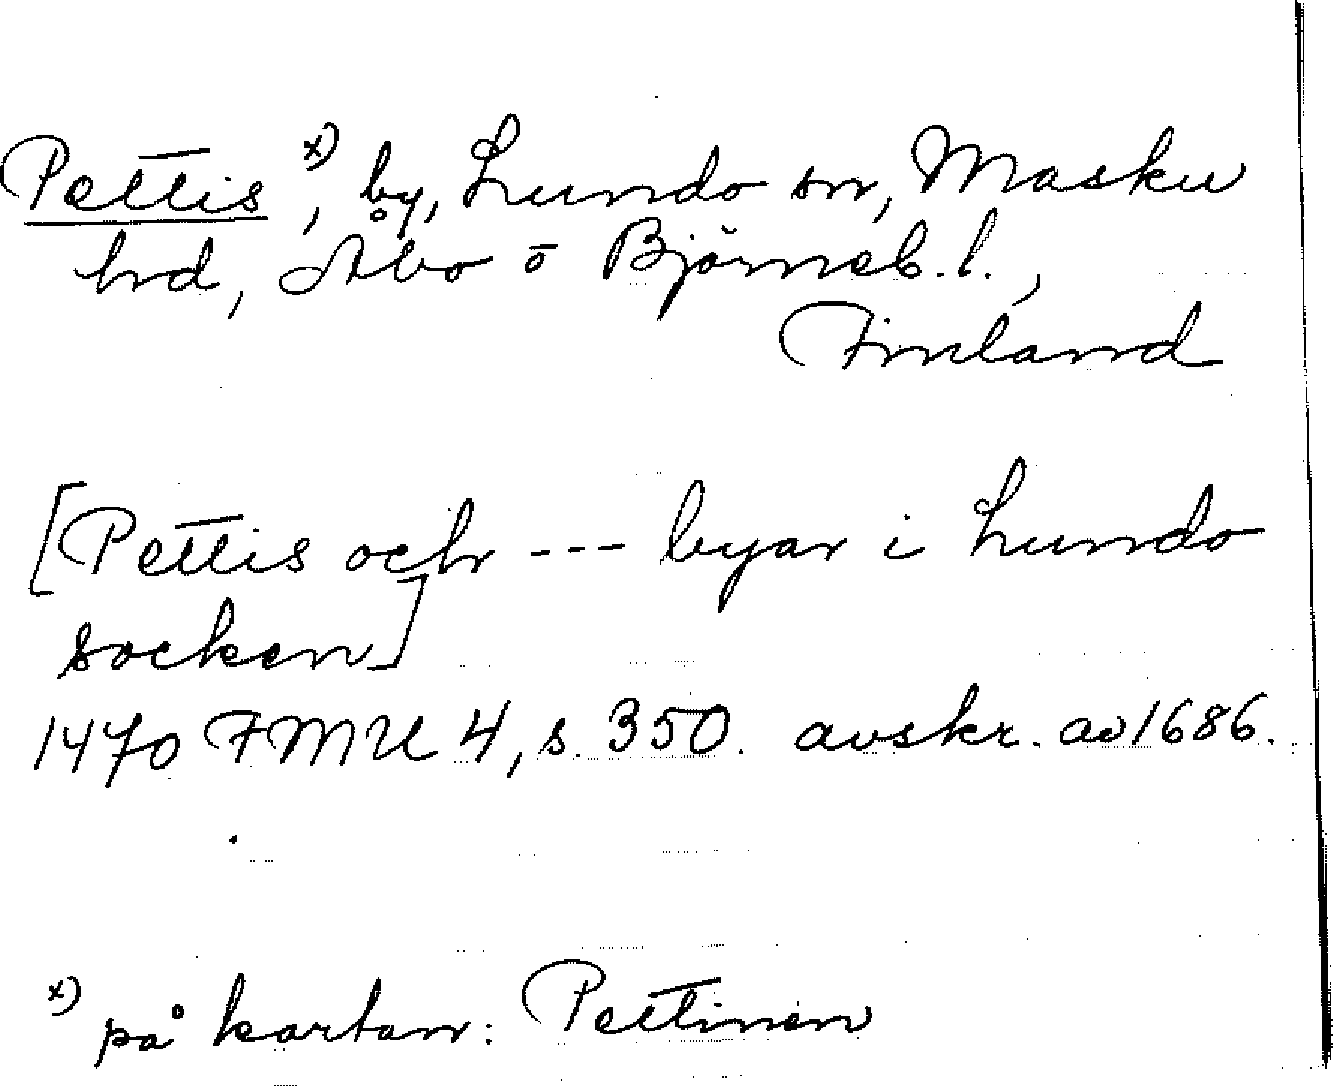 Pettis x), by, Lundo sn, Masku
hrd, Åbo o Björneb. l.,
Finland
[Pettis och --- byar i Lundo
socken]
1470 FMU 4, s. 350. avskr. av 1686.
x) på kartan: Pettinen